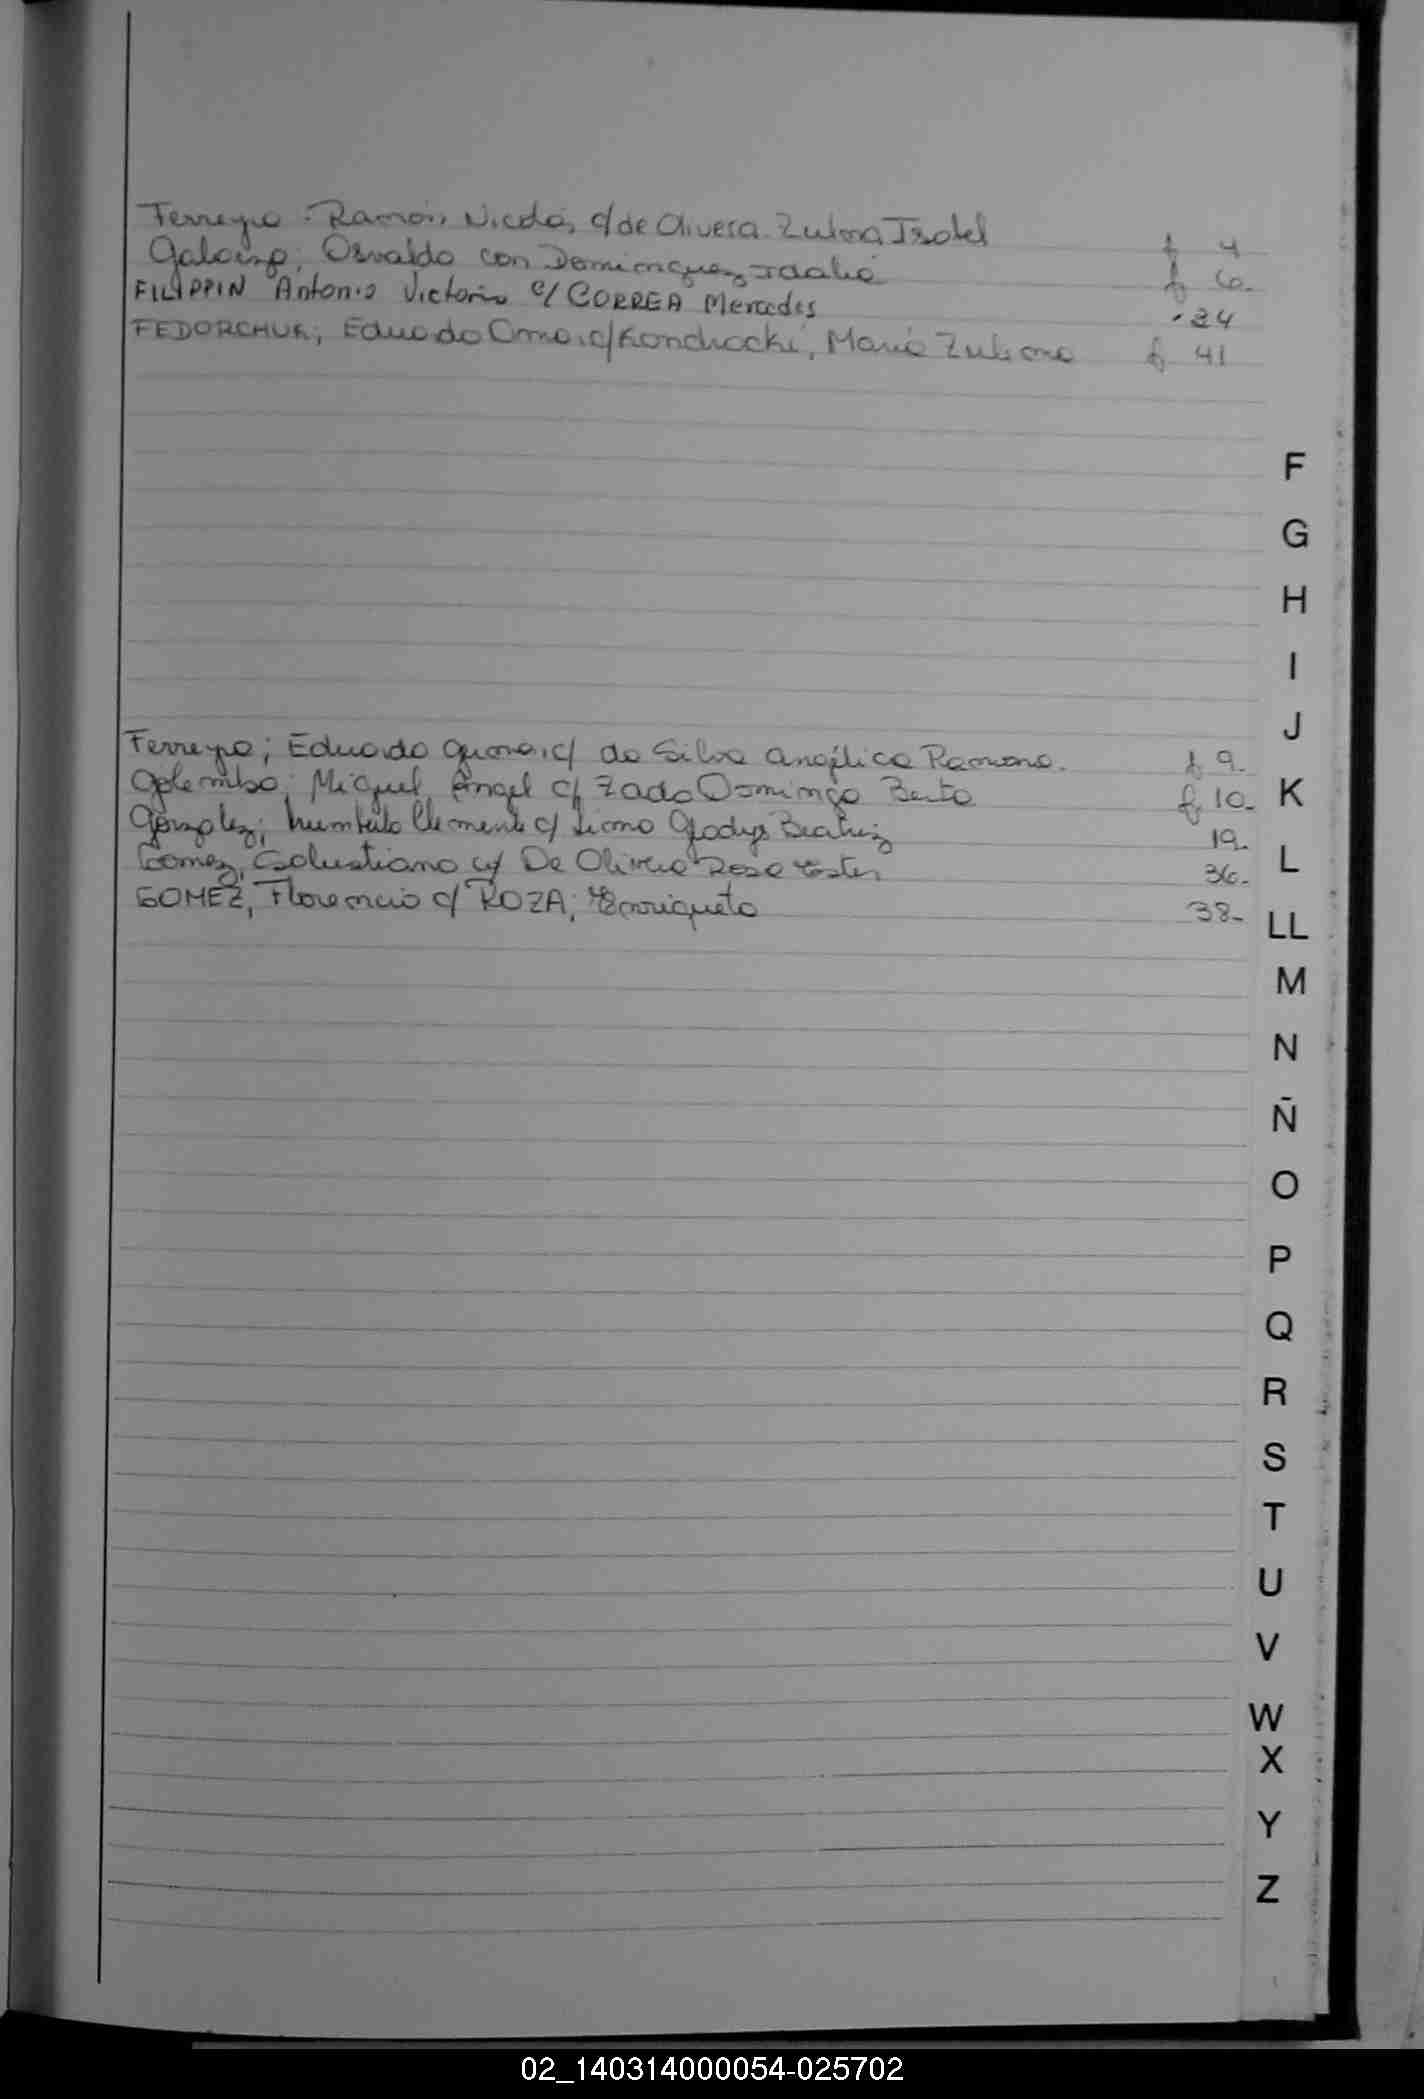 Ferreyra Ramón, Nicolá, c/de Olivera Zulma Isabel f 4
Osvaldo con Dominguez f 6.
FILIPPIN Antonio Victorio c/ CORREA Mercedes 34
FEDORCHUK, Eduardo Omar c/ Kondracki, María Zulema f 41
F
G
H
I
J
Ferreyra; Eduardo c/ da Silva Angélica Ramona. f 9.
Miguel Ángel c/ Zado Dominga Berta f 10.
K
González; Humberto Clemente c/ Gladys Beatriz 19.
L
Gomez, Salustiano c/ De Olivera Rosa Ester 36.
GOMEZ, Florencio c/ ROZA; Enriqueta 38-
LL
M
N
Ñ
O
P
Q
R
S
T
U
V
W
X
Y
Z
02_140314000054-025702